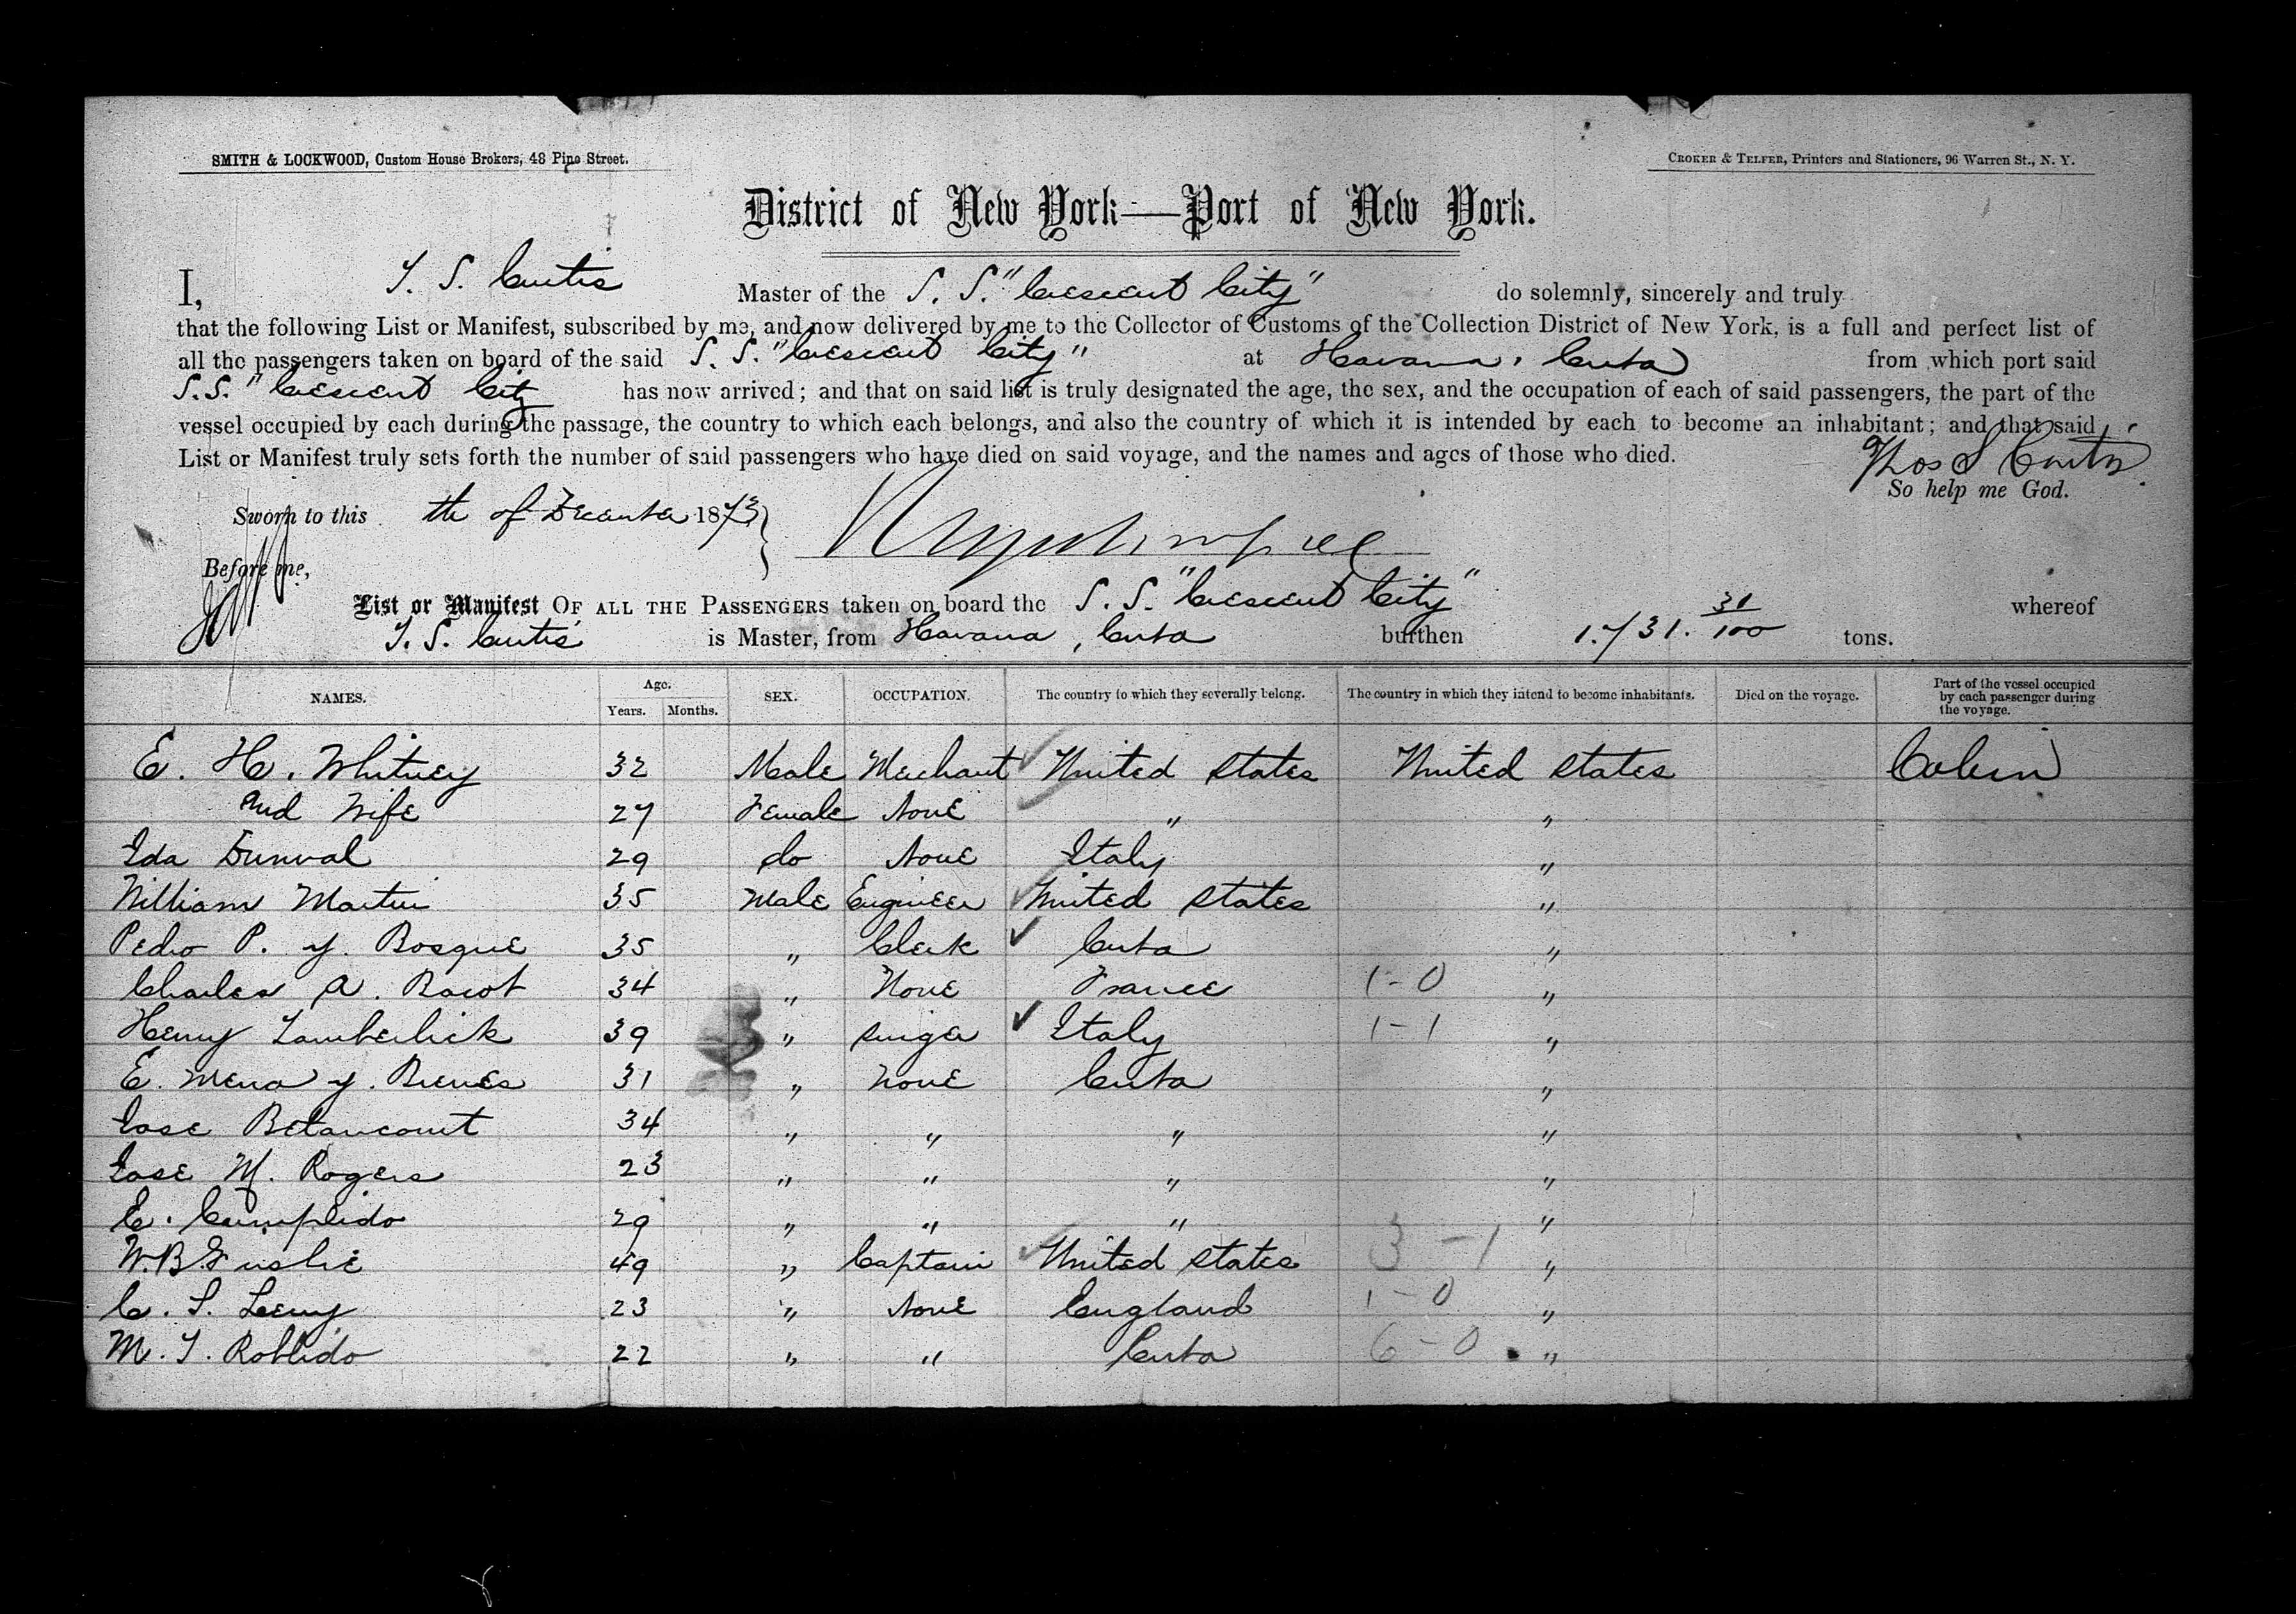 SMITH & LOCKWOOD, Custom House Brokers, 48 Pine Street.
CROKER & TELFER, Printers and Stationers, 96 Warren St., N. Y.
District of New York—Port of New York.
I, T. S. Curtis Master of the S. S. "Crescent City" do solemnly, sincerely and truly
that the following List or Manifest, subscribed by me, and now delivered by me to the Collector of Customs of the Collection District of New York, is a full and perfect list of
all the passengers taken on board of the said S. S. "Crescent City" at Havana, Cuba from which port said
S.S. "Crescent City has now arrived; and that on said list is truly designated the age, the sex, and the occupation of each of said passengers, the part of the
vessel occupied by each during the passage, the country to which each belongs, and also the country of which it is intended by each to become an inhabitant; and that said
List or Manifest truly sets forth the number of said passengers who have died on said voyage, and the names and ages of those who died.
Thos S Curtis
So help me God.
Sworn to this th of December 1873
Before me,
List or Manifest OF ALL THE PASSENGERS taken on board the S. S. "Crescent City" whereof
T. S. Curtis is Master, from Havana, Cuba burthen 1.731. 31/100 tons.
NAMES. Age. Years. Months. SEX. OCCUPATION. The country to which they severally belong. The country in which they intend to become inhabitants. Died on the voyage. Part of the vessel occupied by each passenger during the voyage.
E. H. Whitney 32 Male Merchant United States United States Cabin
and Wife 27 Female None " "
Ida Dunval 29 do None Italy "
William Martin 35 Male Engineer United States "
Pedro P. y. Bosque 35 " Clerk Cuba "
Charles A. Bacot 34 " None France 1-0 "
Henry Tamberlick 39 " Singer Italy 1-1 "
E. Mena y. 31 " None Cuba "
Jose Betancourt 34 " " " "
Jose M. Rogers 23 " " " "
C. Cumplido 29 " " " "
W.B. 49 " Captain United States 3-1 "
C. S. Leery 23 " None England 1-0 "
M. T. Robledo 22 " " Cuba 6-0 "